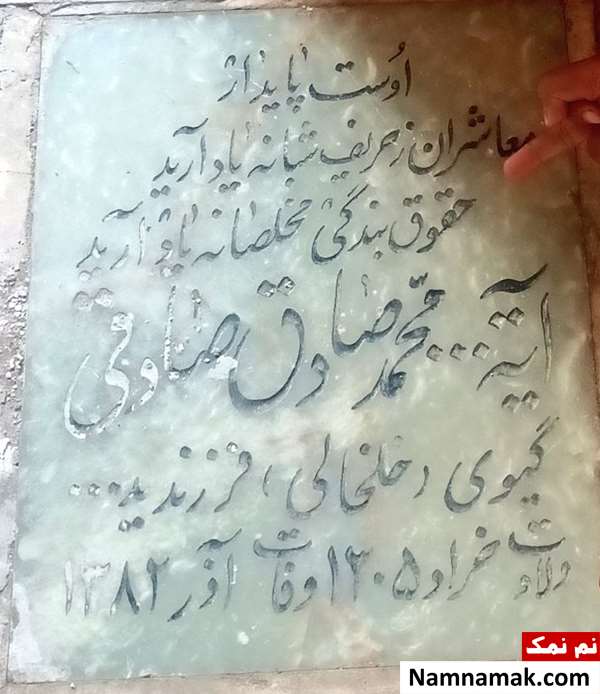 اوست پایدار
معاشران ز حریف شبانه یاد آرید
حقوق بندگی مخلصانه یاد آرید
آیة... محمد صادق صادقی
گیوی (خلخالی) فرزند ید...
ولادت خرداد ۱۳۰۵ وفات آذر ۱۳۸۲
نم نمک
Namnamak.com